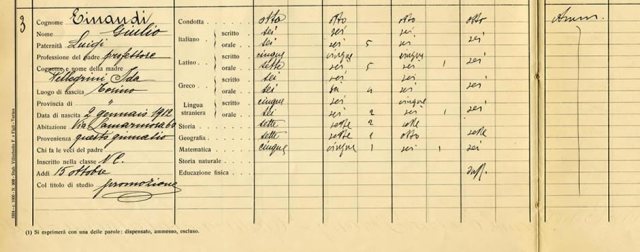 3
Cognome Einaudi
Nome Giulio
Paternità Luigi
Professione del padre professore
Cognome e nome della madre
Pellegrini Ida
Luogo di nascita Torino
Provincia di "
Data di nascita 2 gennaio 1912
Abitazione Via Lamarmora 60
Provenienza questo ginnasio
Chi fa le veci del padre
Inscritto nella classe
Addì 15 ottobre
Col titolo di studio promozione
Condotta otto otto otto otto
Italiano scritto sei sei sei
orale sei sei 5 sei sei
Latino scritto cinque cinque cinque
orale sette sei 5 sei 1 sei
Greco scritto sei sei sei
orale sei 4 sei sei
Lingua straniera scritto cinque sei cinque
orale sei sei 2 sei 1 sei
Storia sette sette 2 sette
Geografia sette sette 1 otto sette
Matematica cinque cinque 1 sei 1 sei
Storia naturale
Educazione fisica
(1) Si esprimerà con una delle parole: dispensato, ammesso, escluso.